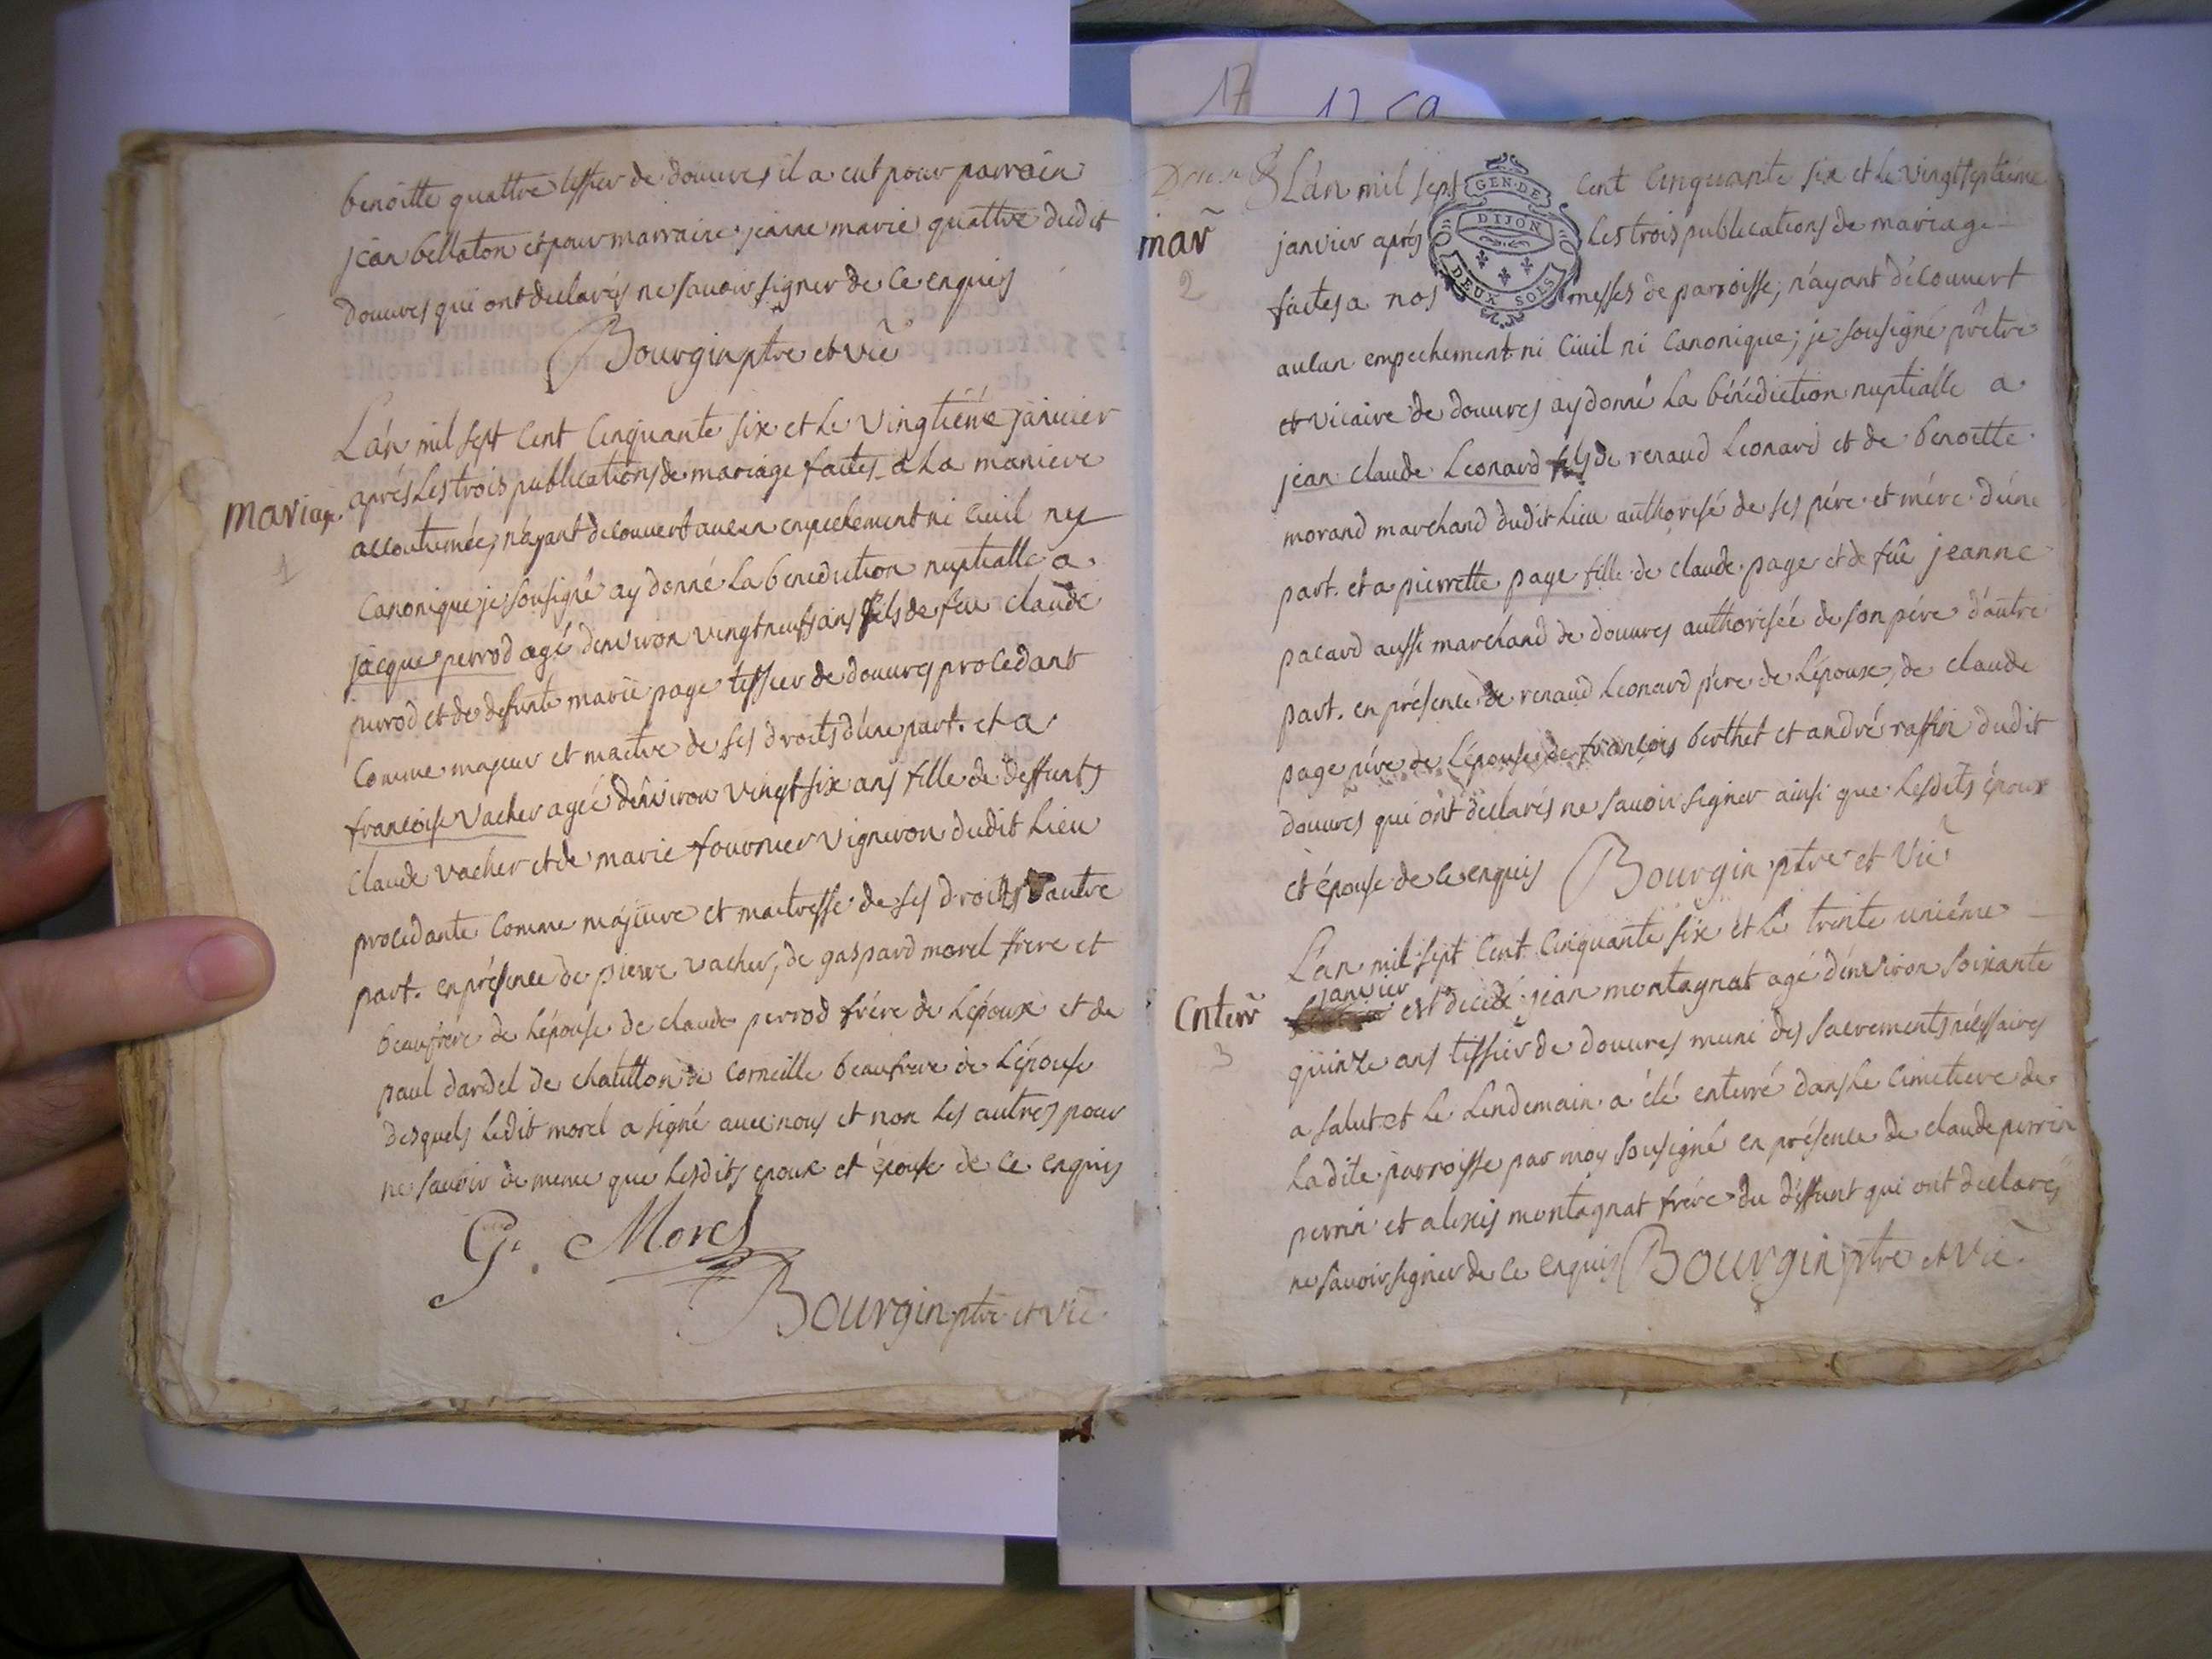 benoitte quattre tissier de douvres il a eut pour parrain
jean bellaton et pour marraine jeanne marie quattre dudit
douvres qui ont declarés ne savoir signer de ce enquis
Bourgin ptre et vic
Lán mil sept cent cinquante six et le vingtiéme janvier
mariage
1
aprés les trois publications de mariage faites a la maniere
accoutumée, n'ayant decouvert aucun empechement ni civil ny
canonique je sousigné ay donné la benediction nuptialle a
jacque perrod agé denviron vingt neufs ans fils de feu claude
perrod et de defunte marie page tissier de douvres procedant
comme majeur et maitre de ses droits d'une part. et a
francoise vacher agée denviron vingt six ans fille de deffunts
claude vacher et de marie fournier vigneron dudit lieu
procedante comme majeure et maitresse de ses droits d'autre
part. en présence de pierre vacher, de gaspard morel frere et
beaufrere de l'épouse de claude perrod frére de l'époux et de
paul dardel de chatillon de corneille beaufrere de l'épouse
desquels ledit morel a signé avec nous et non les autres pour
ne savoir de meme que lesdits epoux et épouse de ce enquis
G. Morel
Bourgin ptre et vic
17
GEN. DE
DIJON
DEUX SOLS
Lán mil sept cent cinquante six et le vingt septiéme
mar
2
janvier aprés les trois publications de mariage
faites a nos messes de parroisse, n'ayant découvert
aucun empechement ni civil ni canonique; je sousigné prêtre
et vicaire de douvres ay donné la bénédiction nuptialle a
jean claude Leonard fils de renaud Leonard et de benoitte
morand marchand dudit lieu authorisé de ses pére et mére d'une
part. et a pierrette page fille de claude page et de feûe jeanne
pacard aussi marchand de douvres authorisée de son pére d'autre
part. en présence de renaud Leonard pére de l'époux, de claude
page pére de l'épouse de francois berthet et andré raffin dudit
douvres qui ont declarés ne savoir signer ainsi que lesdits époux
et épouse de ce enquis Bourgin ptre et vic
Lán mil sept cent cinquante six et le trente uniéme
Enterr
3
janvier
est decedé jean montagnat agé d'environ soixante
quinze ans tissier de douvres muni des sacrements nécessaires
a salut et le lendemain a été enterré dans le cimetiere de
ladite parroisse par moy sousigné en présence de claude perrin
perrin et alexis montagnat frére du déffunt qui ont declarés
ne savoir signer de ce enquis Bourgin ptre et vic